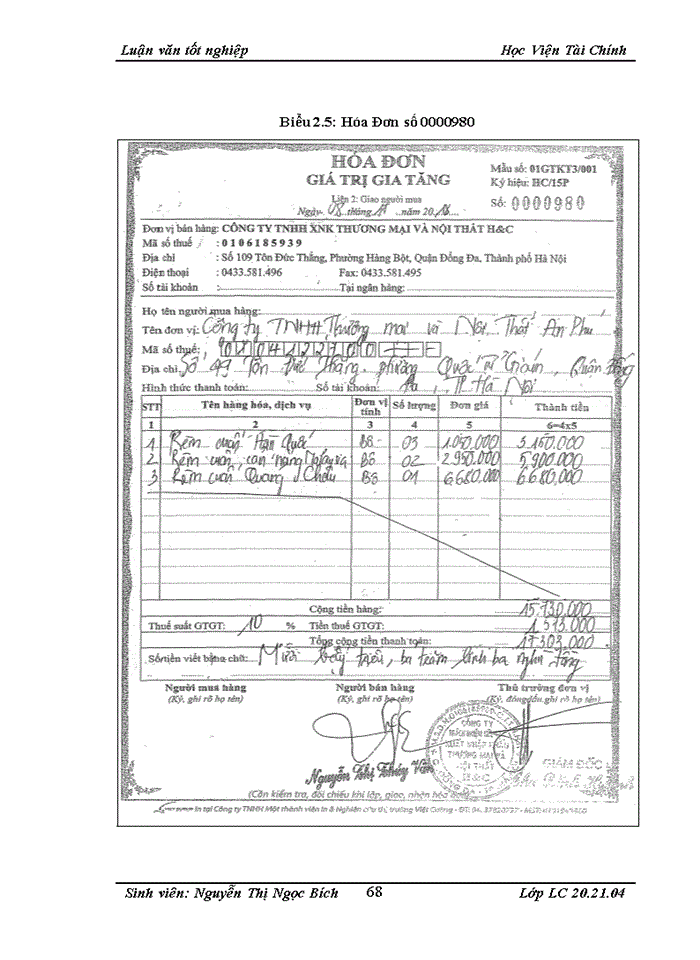 Luận văn tốt nghiệp Học Viện Tài Chính
Biểu 2.5: Hóa Đơn số 0000980
HÓA ĐƠN
GIÁ TRỊ GIA TĂNG
Mẫu số: 01GTKT3/001
Ký hiệu: HC/15P
Số: 0000980
Liên 2: Giao người mua
Ngày 08 tháng năm 20
Đơn vị bán hàng: CÔNG TY TNHH XNK THƯƠNG MẠI VÀ NỘI THẤT H&C
Mã số thuế : 0106185939
Địa chỉ : Số 109 Tôn Đức Thắng, Phường Hàng Bột, Quận Đống Đa, Thành phố Hà Nội
Điện thoại : 0433.581.496 Fax: 0433.581.495
Số tài khoản : Tại ngân hàng:
Họ tên người mua hàng:
Tên đơn vị: Công ty TNHH Thương mại và Nội Thất An Phú
Mã số thuế:
Địa chỉ: Số 49 Tôn Đức Thắng, phường Quốc Tử Giám, Quận Đống
Hình thức thanh toán: Số tài khoản: Đa, TP Hà Nội
STT Tên hàng hóa, dịch vụ Đơn vị tính Số lượng Đơn giá Thành tiền
1 2 3 4 5 6=4x5
1 Rèm cuốn Hàn Quốc Bộ 03 1.050.000 3.150.000
2 Rèm cuốn Bộ 02 2.950.000 5.900.000
3 Rèm cuốn Quảng Châu Bộ 01 6.680.000 6.680.000
Cộng tiền hàng: 15.730.000
Thuế suất GTGT: 10 % Tiền thuế GTGT: 1.573.000
Tổng cộng tiền thanh toán: 17.303.000
Số tiền viết bằng chữ: Mười bảy triệu, ba trăm linh ba nghìn đồng
Người mua hàng Người bán hàng Thủ trưởng đơn vị
(Ký, ghi rõ họ tên) (Ký, ghi rõ họ tên) (Ký, đóng dấu, ghi rõ họ tên)
CÔNG TY
XUẤT NHẬP KHẨU
THƯƠNG MẠI VÀ
NỘI THẤT
H&C
GIÁM ĐỐC
Nguyễn Thị Thúy Vân
(Cần kiểm tra, đối chiếu khi lập, giao, nhận hóa đơn)
In tại Công ty TNHH Một thành viên In & Nghiên cứu thị trường Việt Cường
Sinh viên: Nguyễn Thị Ngọc Bích 68 Lớp LC 20.21.04